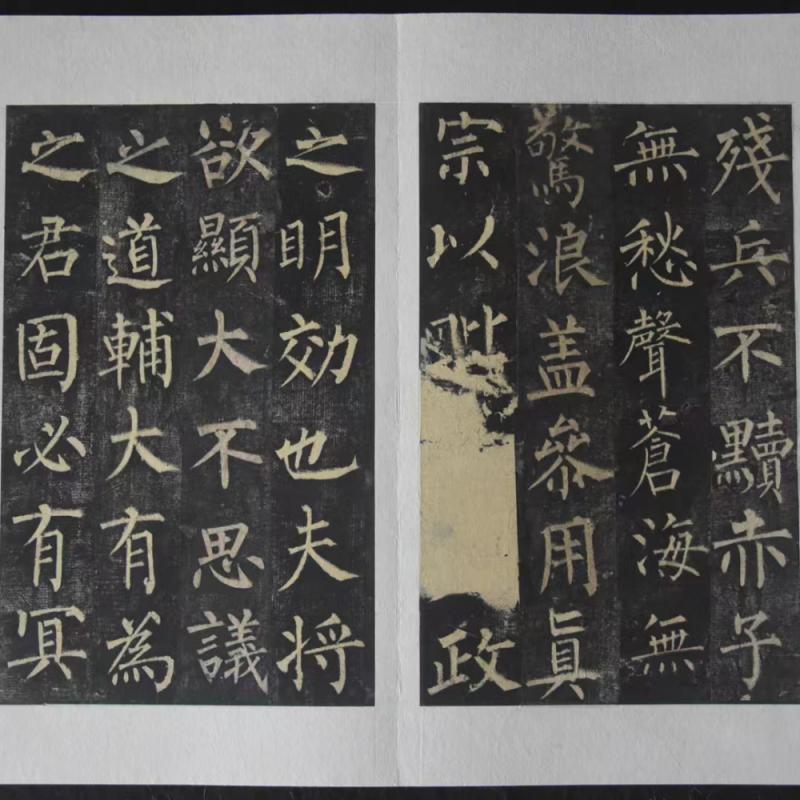 殘兵不黷赤子
無愁聲蒼海無
驚浪盖叅用真
宗以政
之明効也夫将
欲顯大不思議
之道輔大有為
之君固必有冥